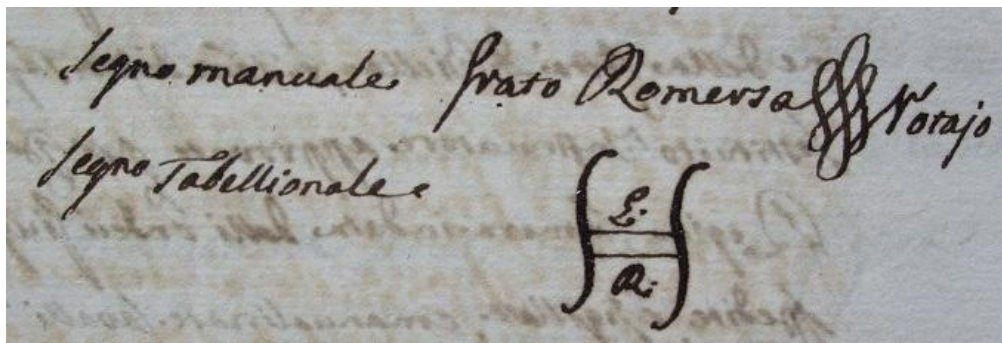 Segno manuale frato Romersa Notajo
Segno Tabellionale
L.
R.